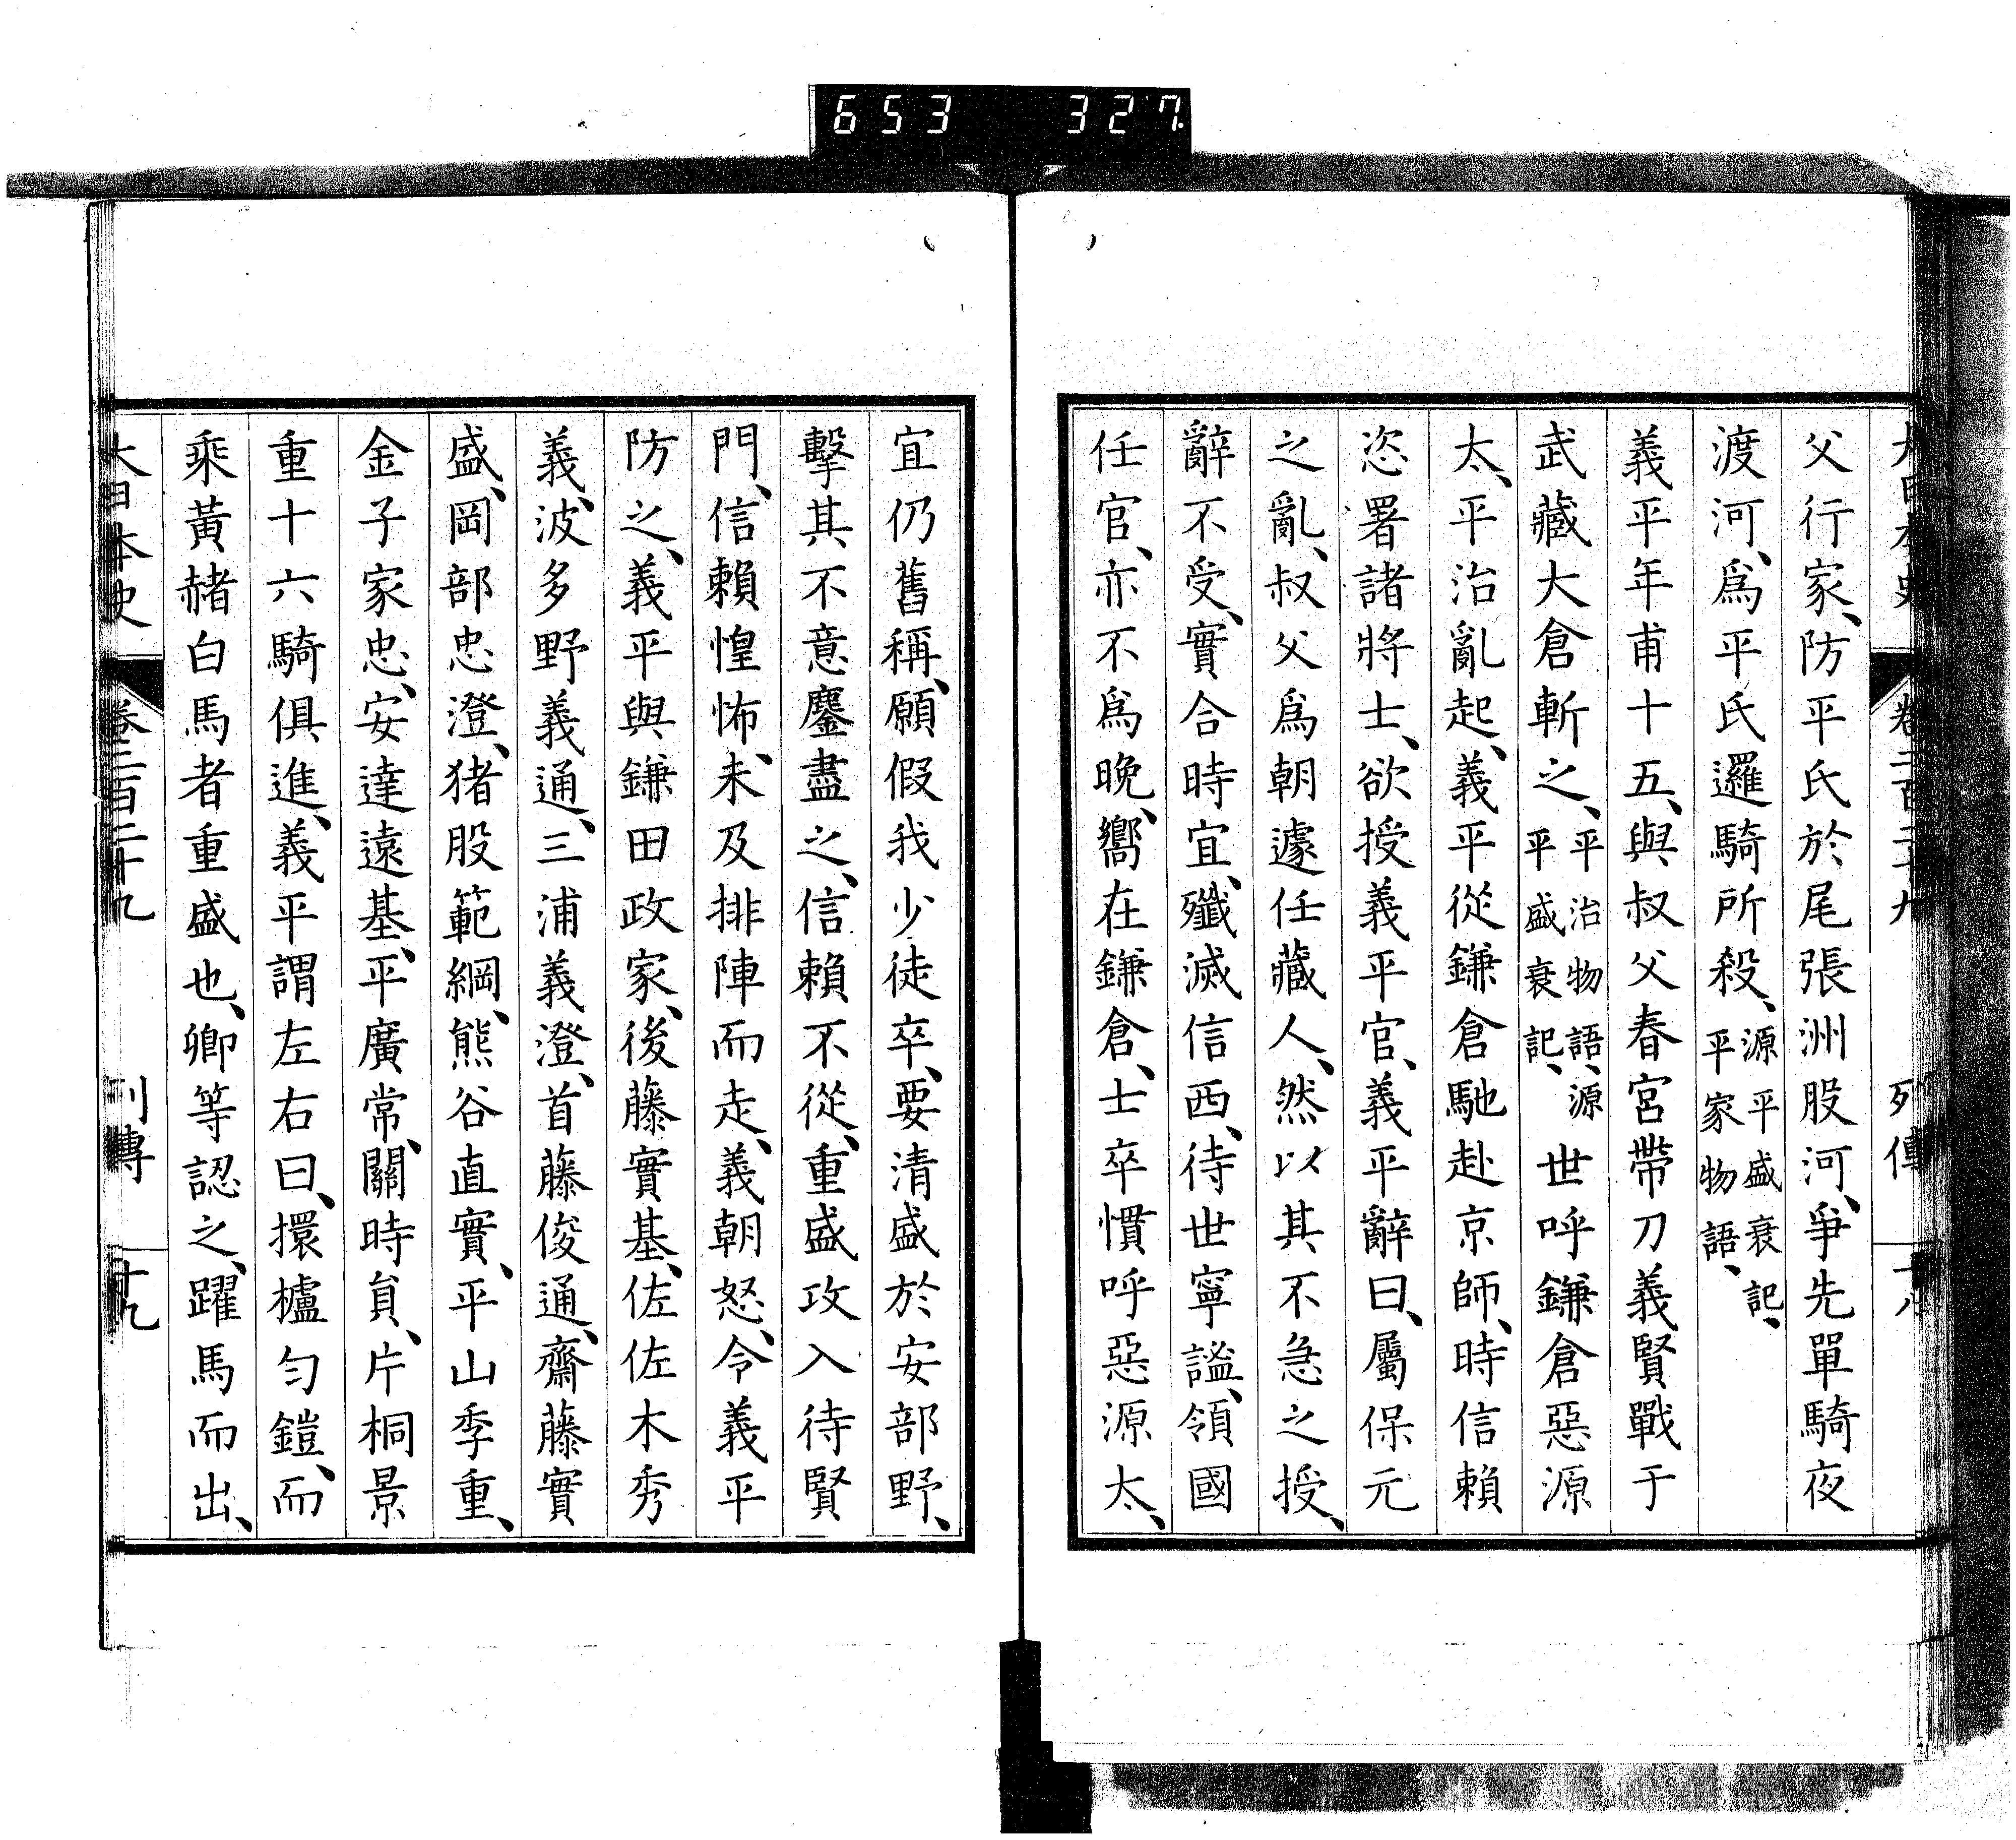 653 327
大日本史 卷二百二十九 列傳 十八
父行家、防平氏於尾張洲股河、爭先單騎夜
渡河、爲平氏邏騎所殺、源平盛衰記、平家物語、
義平年甫十五、與叔父春宮帶刀義賢戰于
武藏大倉斬之、平治物語、源平盛衰記、世呼鎌倉惡源
太、平治亂起、義平從鎌倉馳赴京師、時信賴
恣署諸將士、欲授義平官、義平辭曰、屬保元
之亂、叔父爲朝遽任藏人、然以其不急之授、
辭不受、實合時宜、殲滅信西、待世寧謐、領國
任官、亦不爲晚、嚮在鎌倉、士卒慣呼惡源太、
宜仍舊稱、願假我少徒卒、要清盛於安部野、
擊其不意鏖盡之、信賴不從、重盛攻入待賢
門、信賴惶怖、未及排陣而走、義朝怒、令義平
防之、義平與鎌田政家、後藤實基、佐佐木秀
義、波多野義通、三浦義澄、首藤俊通、齋藤實
盛、岡部忠澄、猪股範綱、熊谷直實、平山季重、
金子家忠、安達遠基、平廣常、關時員、片桐景
重十六騎俱進、義平謂左右曰、擐櫨匀鎧、而
乘黃赭白馬者重盛也、卿等認之、躍馬而出、
大日本史 卷二百二十九 列傳 十九